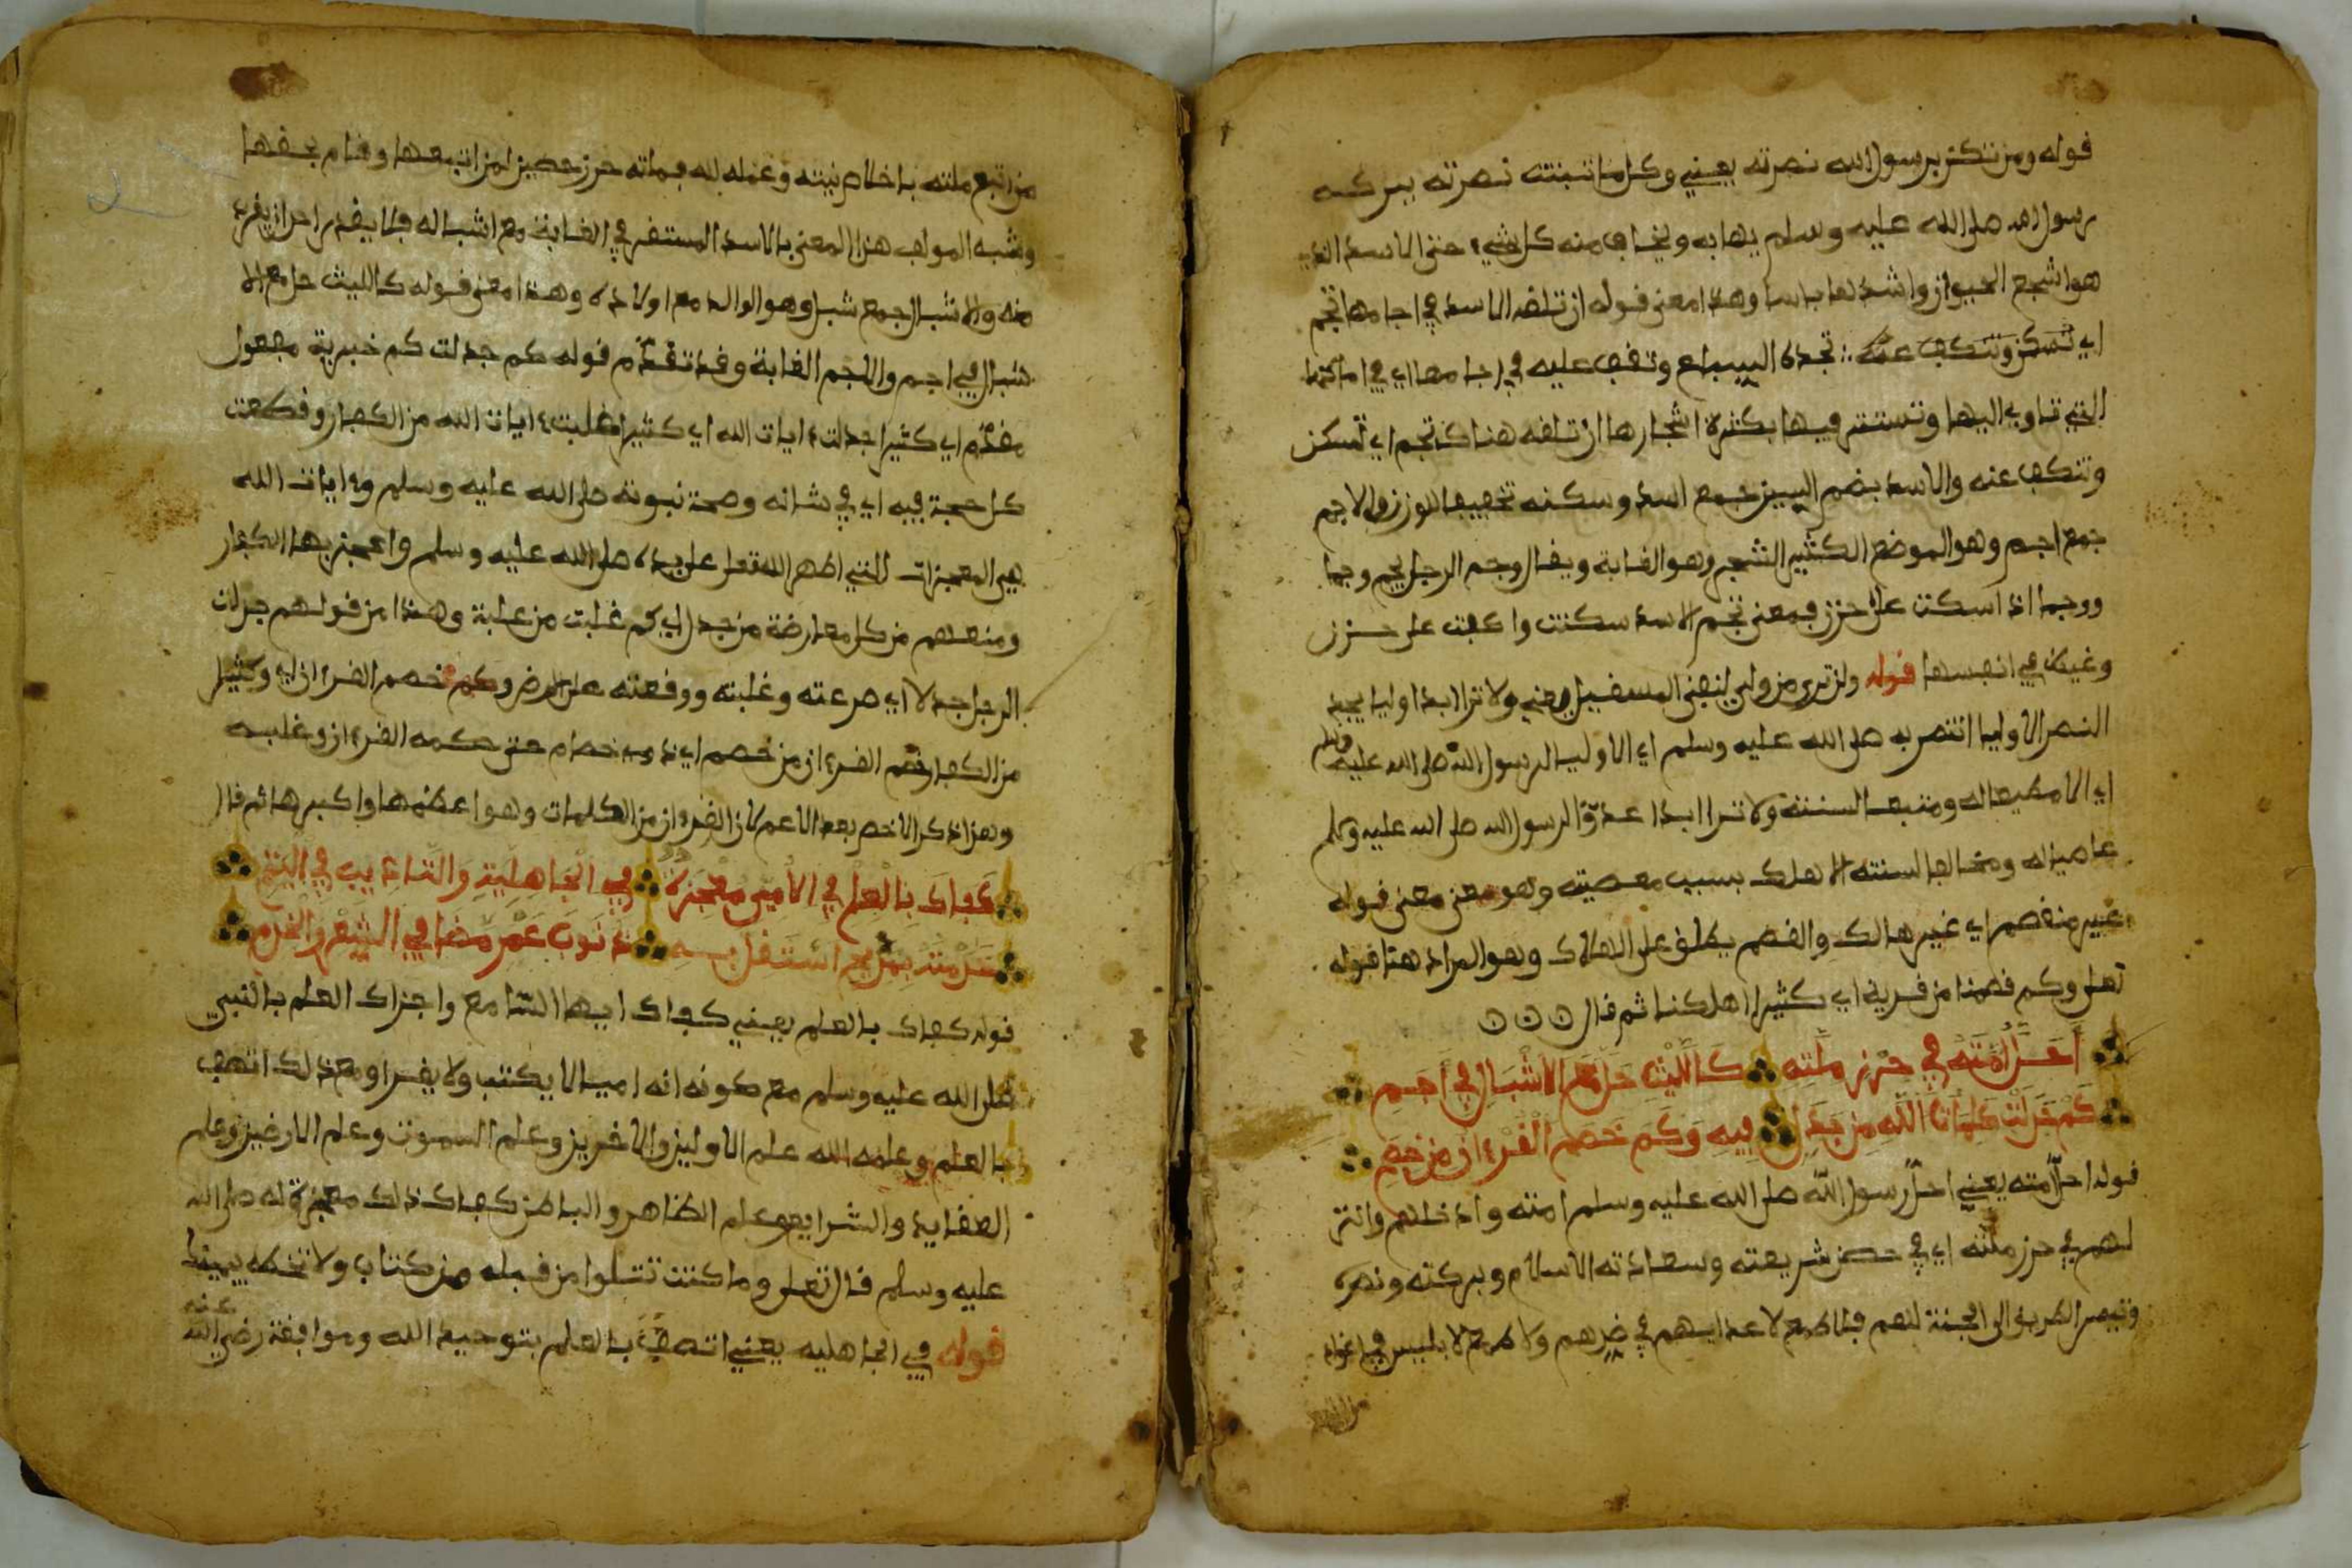 قوله ومن تكن برسول الله نصرته يعني وكل من تبتت نصرته ببركة
رسول الله صلى الله عليه وسلم يهابه ويخاف منه كل شيء حتى الاسد الذي
هو اشجع الحيوان واشدها باسا وهذا معنى قوله ان تلقه الاسد في اجامها تجم
اي تسكن وتنكف عنه تجده السباع وتقف عليه في اجامها اي في اماكنها
التي تاوي اليها وتستتر فيها بكثرة اشجارها ان تلقه هناك تجم اي تسكن
وتنكف عنه والاسد بضم السين جمع اسد وسكنه تخفيفا للوزن والاجم
جمع اجم وهو الموضع الكثير الشجر وهو الغابة ويقال وجم الرجل يجم وجما
ووجما اذا سكت على حزن فمعنى تجم الاسد سكتت واكفت على حزن
وغيظ في انفسها قوله ولن ترى من ولي لنص المسفيل يعني ولا ترا ابدا وليا يجد
النصر الا وليا انتصر به صلى الله عليه وسلم اي الا وليا لرسول الله صلى الله عليه وسلم
اي الا مطيعا له ومتبعا لسنته ولا ترا ابدا عدوّا لرسول الله صلى الله عليه وسلم
عاصيا له ومخالفا لسنته الا هلك بسبب معصيته وهو معنى معنى قوله
غير منقصم اي غير هالك والقصم يطلق على الهلاك وهو المراد هنا قوله
تعلى وكم قصمنا من قرية اي كثيرا اهلكنا ثم قال
أَحَلَّ أُمَّتَهُ فِي حِرْزِ مِلَّتِهِ كَاللَّيْثِ حَلَّ مَعَ الاشْبَالِ فِي أَجَمِ
كَمْ جَدَّلَتْ كَلِمَاتُ اللَّهِ مِنْ جَدَلٍ فِيهِ وَكَمْ خَصَمَ الْقُرْءَانُ مِنْ خَصِمِ
قوله احلّ امته يعني احلّ رسول الله صلى الله عليه وسلم امته وادخلهم وانزل
لهم في حرز ملته اي في حصن شريعته وسعادته الاسلام وبركته ونصره
وتيسر الطريق الى الجنة لهم فلا طمع لاعدايهم في ضرهم ولا طمع لابليس في اغواء
من اتبع ملته باخلاص نيته وعمله لله فملته حرز حصين لمن اتبعها وقام بحقها
وشبه المولف هذا المعنى بالاسد المستقر في الغابة مع اشباله فلا يقدر احد ان يقرب
منه والاشبال جمع شبل وهو الوالد مع اولاده وهذا معنى قوله كالليث حل مع الا
شبال في اجم والاجم الغابة وقد تقدّم قوله كم جدلت كم خبرية مفعول
مقدّم اي كثيرا جدلت ءايات الله اي كثيرا غلبت ءايات الله من الكفار وقطعت
كل حجة فيه اي في شانه وصحة نبوته صلى الله عليه وسلم وءايات الله
هي المعجزات التي اظهر الله تعلى على يده صلى الله عليه وسلم واعجز بها الكفار
ومنعهم من كل معارضة من جدل اي كم غلبت من غلبة وهذا من قولهم جدلت
الرجل جدلا اي صرعته وغلبته ووقعته على الارض وكم خصم القرءان اي وكثيرا
من الكفار خصم القرءان من خصم اي ذو خصام حتى حكمه القرءان وغلبه
وهذا ذكر الاخص بعد الاعم لان القرءان من الكلمات وهو اعظمها واكبرها ثم قال
كَفَاكَ بِالْعِلْمِ فِي الأُمِّيِّ مُعْجِزَةً فِي الْجَاهِلِيَّةِ وَالتَّأْدِيبِ فِي الْيُتُمِ
خَدَمْتُهُ بِمَدِيحٍ أَسْتَقِيلُ بِهِ ذُنُوبَ عُمْرٍ مَضَا فِي الشِّعْرِ وَالْخِدَمِ
قوله كفاك بالعلم يعني كفاك ايها السّامع واجزاك العلم بالنبي
صلى الله عليه وسلم مع كونه انه اميا لا يكتب ولا يقرا ومع ذلك اتصف
بالعلم وعلمه الله علم الاولين والاخرين وعلم السموت وعلم الارضين وعلم
العقايد والشرايع وعلم الظاهر والباطن كفاك ذلك معجزة له صلى الله
عليه وسلم قال تعلى وما كنت تتلوا من قبله من كتاب ولا تخطه بيمينك
قوله في الجاهليه يعني اتصف بالعلم بتوحيد الله وموافقة رضي الله عنه